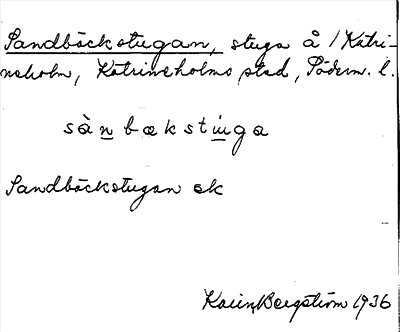 Sandbäckstugan, stuga å 1 Katri-
neholm, Katrineholms stad, Söderm. l.
sànbækstuga
Sandbäckstugan ek
Karin Bergström 1936